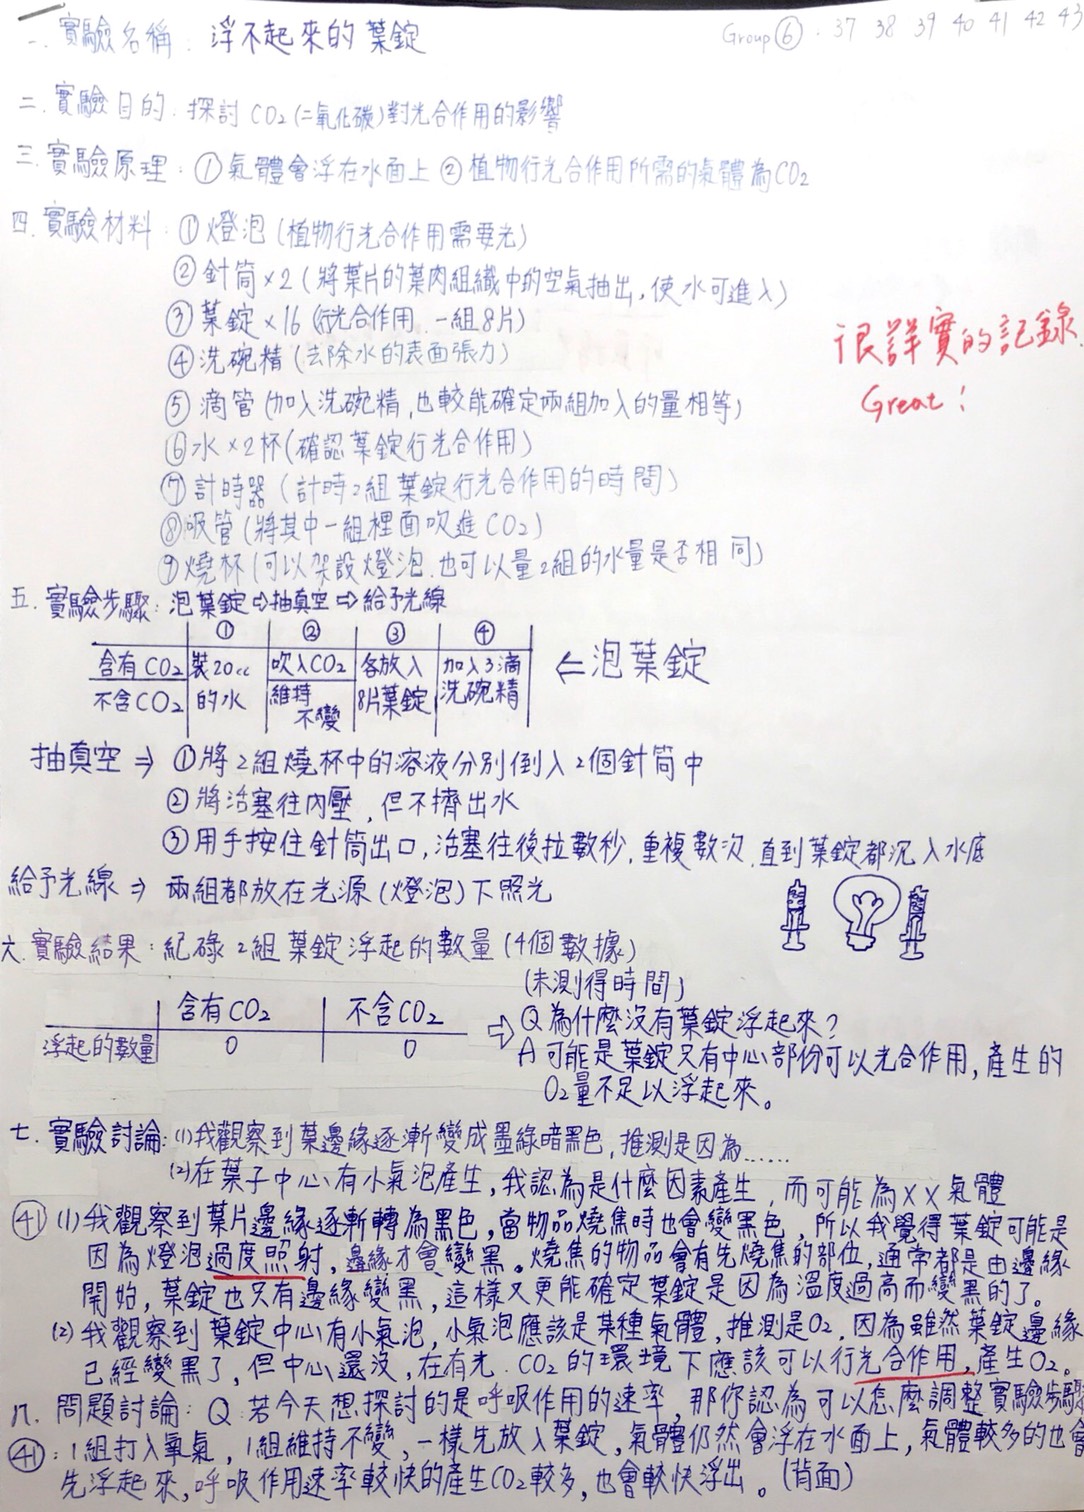 一. 實驗名稱: 浮不起來的葉錠
Group⑥. 37 38 39 40 41 42 43
二. 實驗目的. 探討CO₂(二氧化碳)對光合作用的影響
三. 實驗原理: ①氣體會浮在水面上 ②植物行光合作用所需的氣體為CO₂
四. 實驗材料: ①燈泡(植物行光合作用需要光)
②針筒×2(將葉片的葉肉組織中的空氣抽出,使水可進入)
③葉錠×16(行光合作用.一組8片)
④洗碗精(去除水的表面張力)
⑤滴管(加入洗碗精,也較能確定兩組加入的量相等)
⑥水×2杯(確認葉錠行光合作用)
⑦計時器(計時2組葉錠行光合作用的時間)
⑧吸管(將其中一組裡面吹進CO₂)
⑨燒杯(可以架設燈泡.也可以量2組的水量是否相同)
很詳實的記錄.
Great!
五. 實驗步驟: 泡葉錠⇨抽真空⇨給予光線
① ② ③ ④
含有CO₂ 裝20cc 吹入CO₂ 各放入 加入3滴
不含CO₂ 的水 維持不變 8片葉錠 洗碗精
⇐泡葉錠
抽真空⇒ ①將2組燒杯中的溶液分別倒入2個針筒中
②將活塞往內壓,但不擠出水
③用手按住針筒出口,活塞往後拉數秒,重複數次,直到葉錠都沉入水底
給予光線⇒ 兩組都放在光源(燈泡)下照光
六. 實驗結果: 紀碌2組葉錠浮起的數量(4個數據)
(未測得時間)
含有CO₂ 不含CO₂
浮起的數量 0 0
⇨Q為什麼沒有葉錠浮起來?
A可能是葉錠只有中心部份可以光合作用,產生的
O₂量不足以浮起來。
七. 實驗討論: (1)我觀察到葉邊緣逐漸變成墨綠暗黑色,推測是因為......
(2)在葉子中心有小氣泡產生,我認為是什麼因素產生,而可能為XX氣體
㊶ (1)我觀察到葉片邊緣逐漸轉為黑色,當物品燒焦時也會變黑色,所以我覺得葉錠可能是
因為燈泡過度照射,邊緣才會變黑。燒焦的物品會有先燒焦的部位,通常都是由邊緣
開始,葉錠也只有邊緣變黑,這樣又更能確定葉錠是因為溫度過高而變黑的了。
(2)我觀察到葉錠中心有小氣泡,小氣泡應該是某種氣體,推測是O₂,因為雖然葉錠邊緣
已經變黑了,但中心還沒,在有光.CO₂的環境下應該可以行光合作用,產生O₂。
八. 問題討論: Q:若今天想探討的是呼吸作用的速率,那你認為可以怎麼調整實驗步驟
㊶: 1組打入氧氣,1組維持不變,一樣先放入葉錠,氣體仍然會浮在水面上,氣體較多的也會
先浮起來,呼吸作用速率較快的產生CO₂較多,也會較快浮出。(背面)